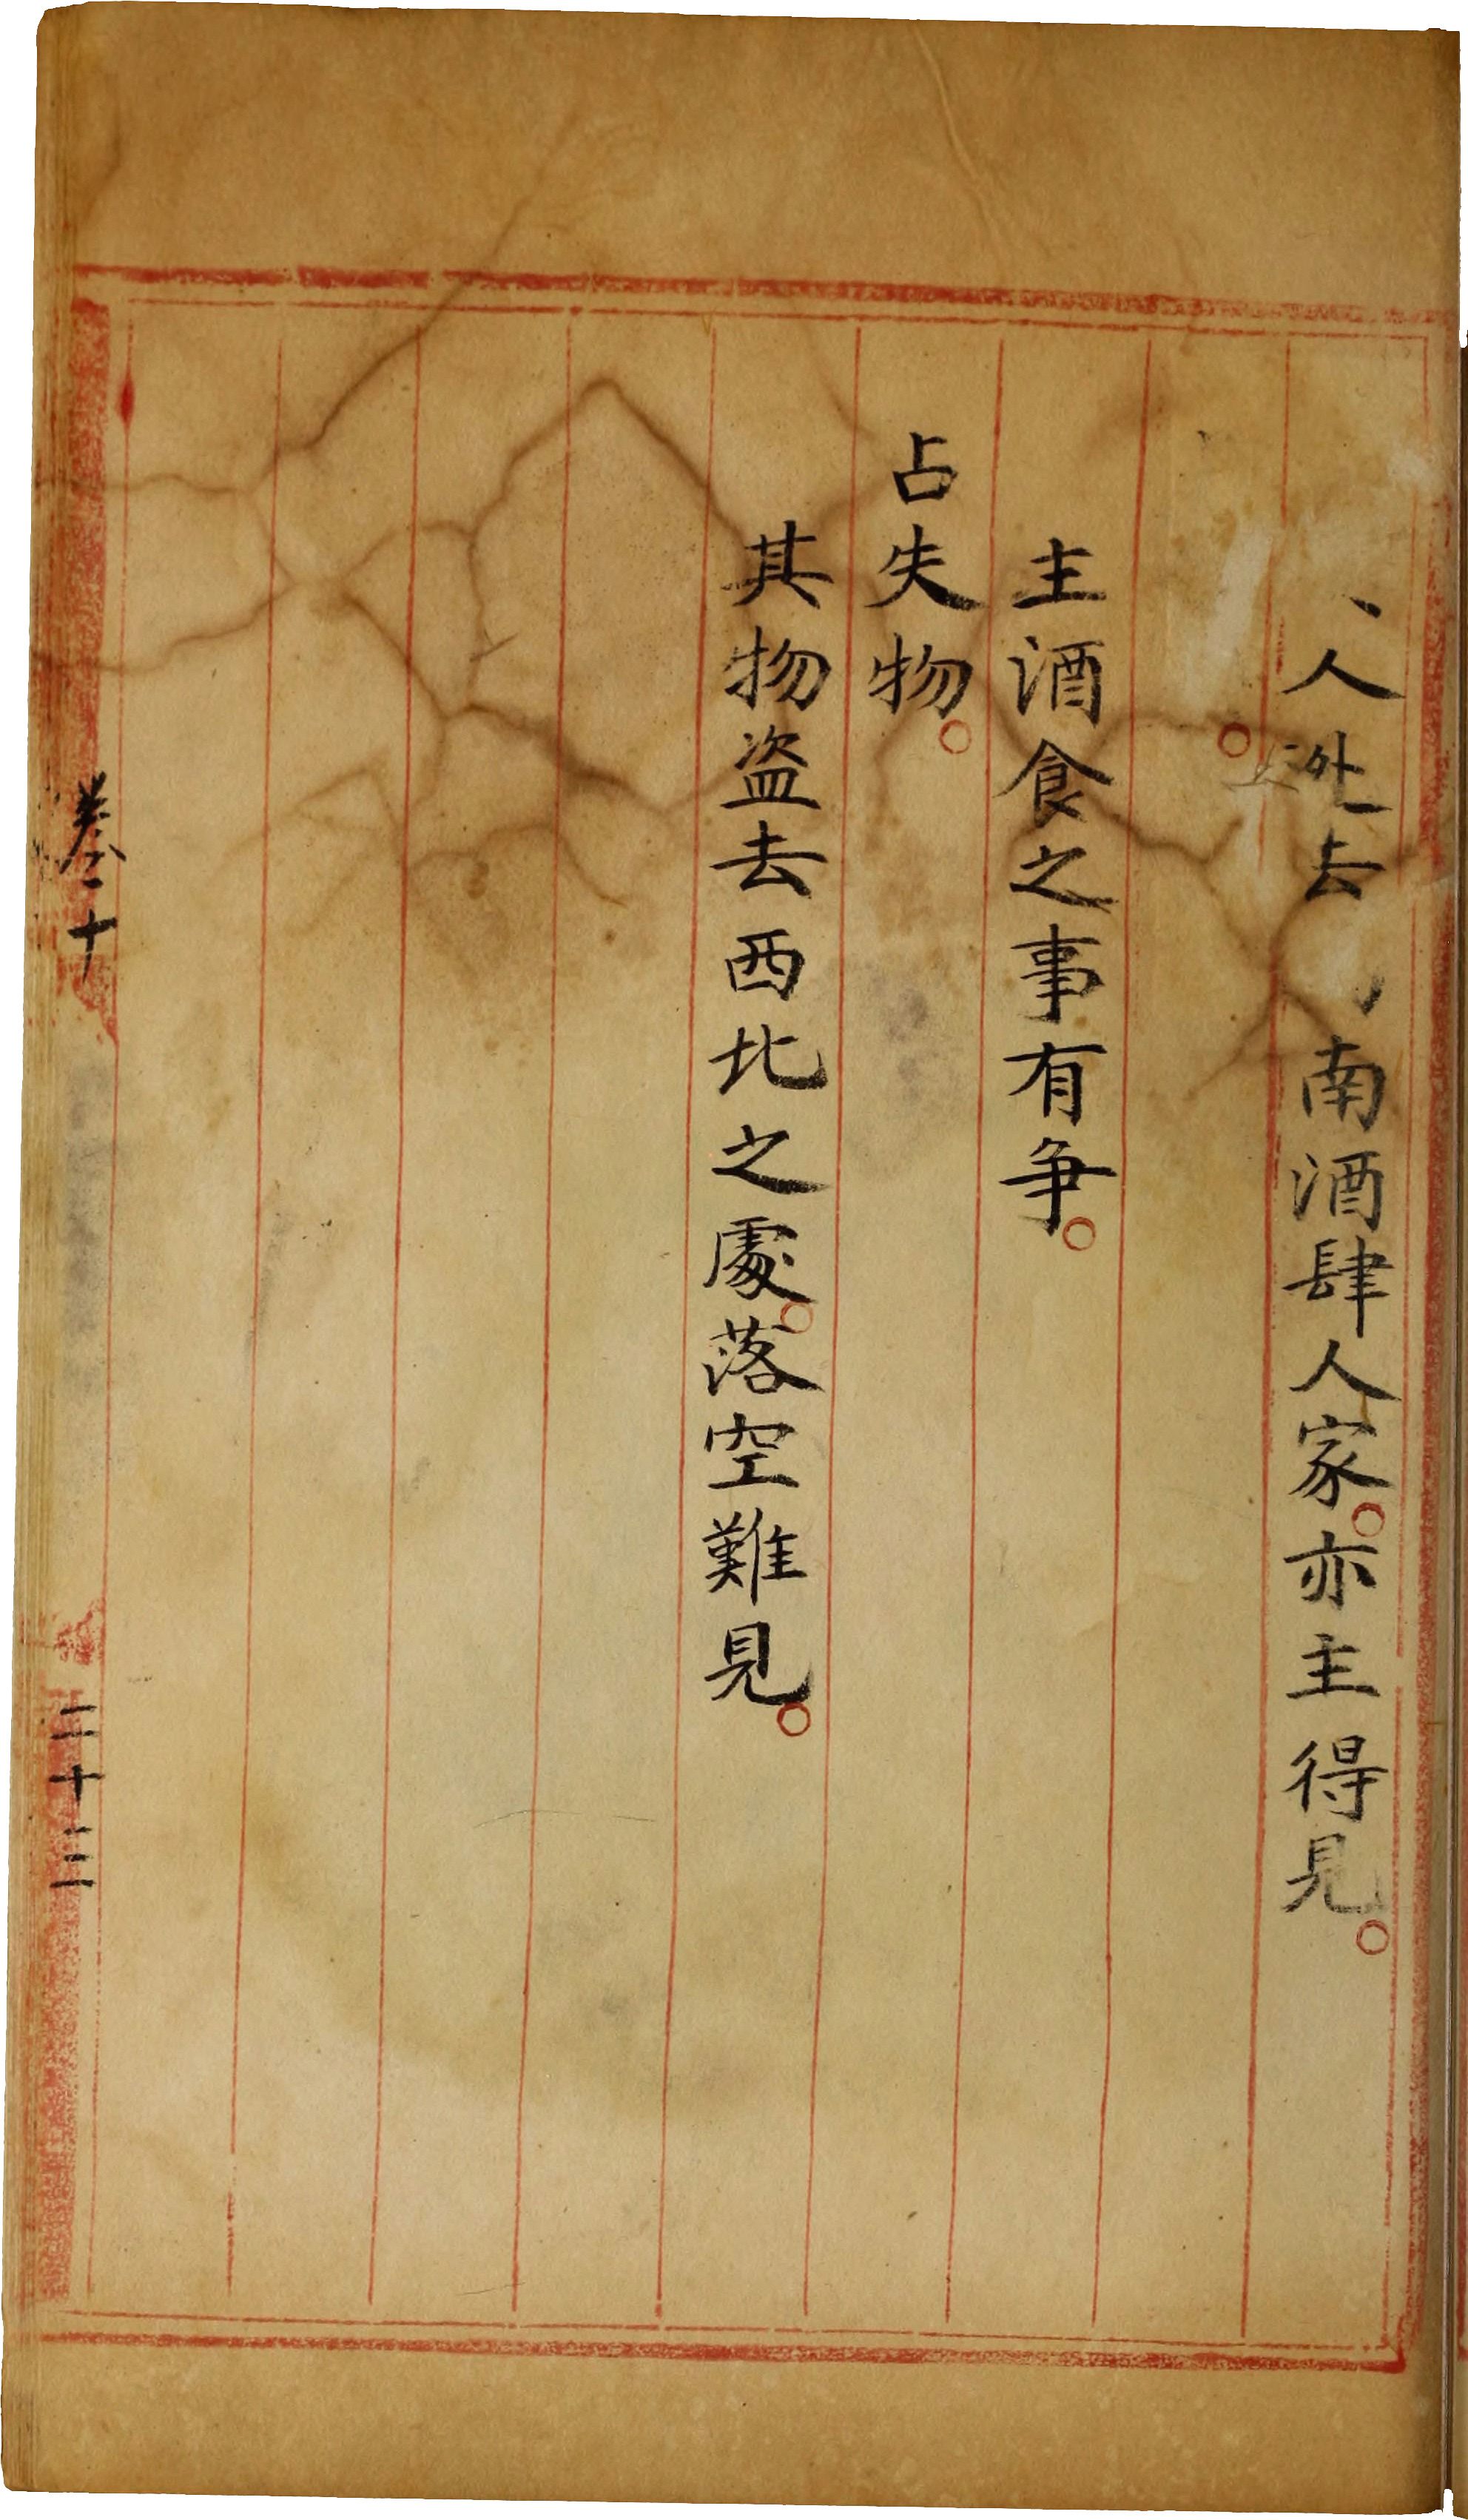 人逃去南酒肆人家亦主得見
主酒食之事有争
占失物
其物盗去西北之處落空難見
卷二十
二十三